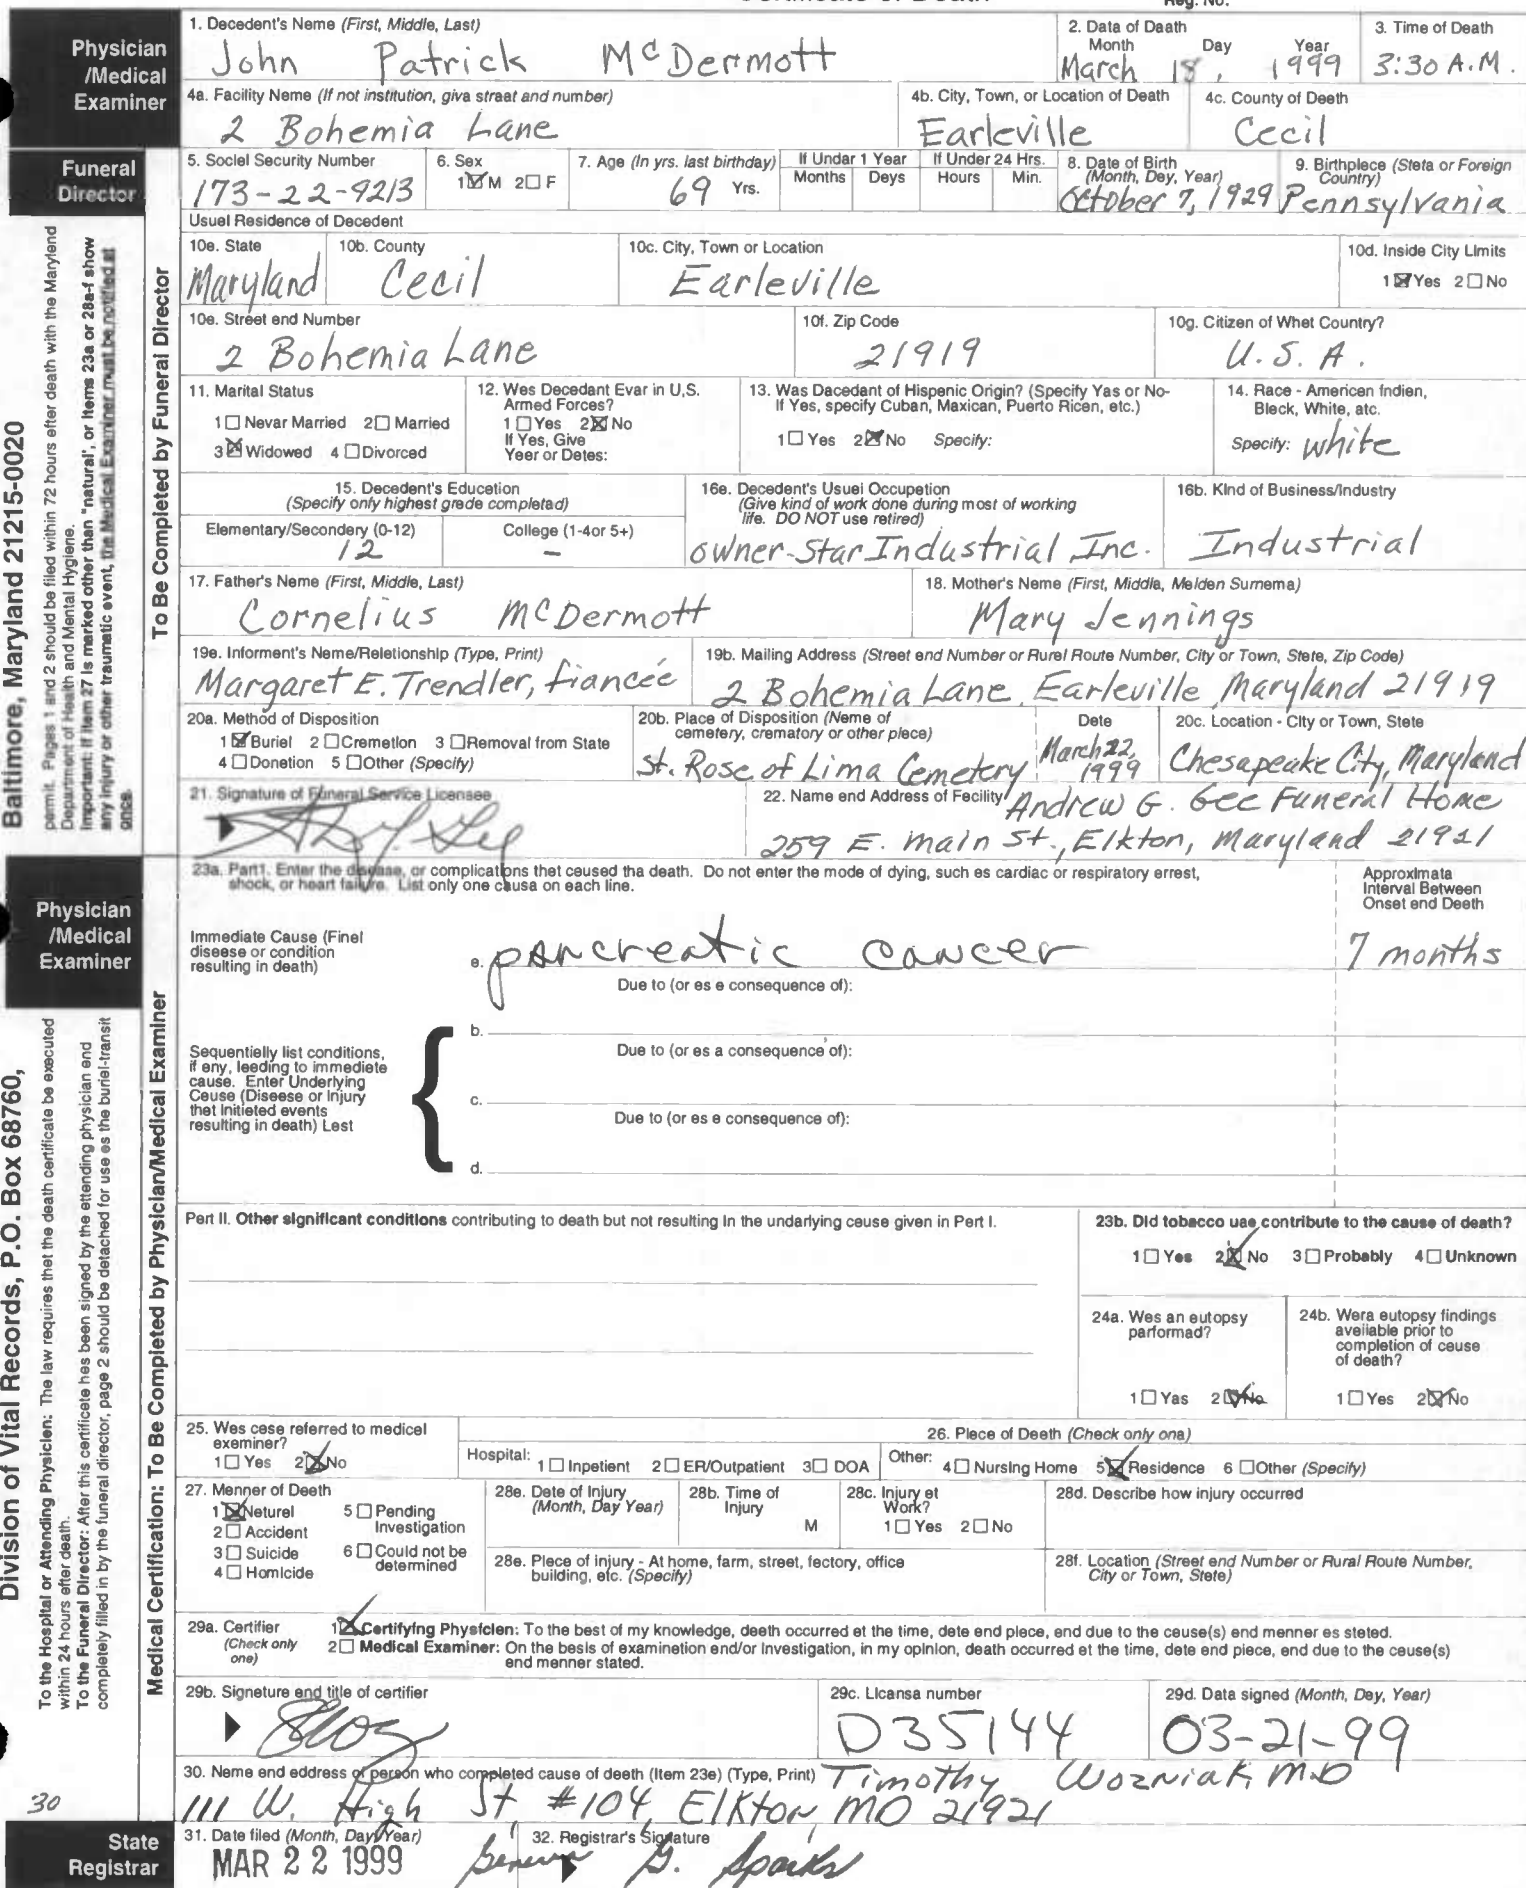 Physician
/Medical
Examiner
1. Decedent's Name (First, Middle, Last)
John Patrick McDermott
2. Data of Daath
Month Day Year
March 18, 1999
3. Time of Death
3:30 A.M.
4a. Facility Name (If not institution, giva straat and number)
2 Bohemia Lane
4b. City, Town, or Location of Death
Earleville
4c. County of Deeth
Cecil
Funeral
Director
5. Sociel Security Number
173-22-9213
6. Sex
1☒M 2☐F
7. Age (In yrs. last birthday)
69 Yrs.
If Under 1 Year
Months Deys
If Under 24 Hrs.
Hours Min.
8. Date of Birth
(Month, Day, Year)
October 7, 1929
9. Birthplace (Steta or Foreign
Country)
Pennsylvania
Usuel Residence of Decedent
10e. State
Maryland
10b. County
Cecil
10c. City, Town or Location
Earleville
10d. Inside City Limits
1☒Yes 2☐No
10e. Street end Number
2 Bohemia Lane
10f. Zip Code
21919
10g. Citizen of Whet Country?
U.S.A.
11. Marital Status
1☐Nevar Married 2☐Married
3☒Widowed 4☐Divorced
12. Wes Decedant Evar in U,S.
Armed Forces?
1☐Yes 2☒No
If Yes, Give
Yeer or Detes:
13. Was Dacedant of Hispenic Origin? (Specify Yas or No-
If Yes, specify Cuban, Maxican, Puerto Ricen, etc.)
1☐Yes 2☒No Specify:
14. Race - Americen Indien,
Bleck, White, atc.
Specify: white
15. Decedent's Education
(Specify only highest grede completad)
Elementary/Secondery (0-12)
12
College (1-4or 5+)
–
16e. Decedent's Usuei Occupetion
(Give kind of work done during most of working
life. DO NOT use retired)
owner-Star Industrial Inc.
16b. Kind of Business/Industry
Industrial
17. Father's Name (First, Middle, Last)
Cornelius McDermott
18. Mother's Name (First, Middla, Melden Surnema)
Mary Jennings
19e. Informent's Name/Reletionship (Type, Print)
Margaret E. Trendler, fiancée
19b. Mailing Address (Street end Number or Rurel Route Number, City or Town, Stete, Zip Code)
2 Bohemia Lane, Earleville, Maryland 21919
20a. Method of Disposition
1☒Buriel 2☐Cremetion 3☐Removal from State
4☐Donetion 5☐Other (Specify)
20b. Place of Disposition (Neme of
cemetery, crematory or other plece)
St. Rose of Lima Cemetery
Dete
March 22,
1999
20c. Location - City or Town, Stete
Chesapeake City, Maryland
21. Signature of Funeral Service Licensee
22. Name end Address of Fecility
Andrew G. Gee Funeral Home
259 E. Main St., Elkton, Maryland 21921
Baltimore, Maryland 21215-0020
permit. Pages 1 and 2 should be filed within 72 hours efter death with the Marylend
Department of Health and Mental Hygiene.
Important: If item 27 is marked other than "natural", or items 23a or 28a-f show
any injury or other traumatic event, the Medical Examiner must be notified at
once.
To Be Completed by Funeral Director
Physician
/Medical
Examiner
23a. Part1. Enter the disease, or complications thet caused tha death. Do not enter the mode of dying, such es cardiac or respiratory errest,
shock, or heart failure. List only one causa on each line.
Approximata
Interval Between
Onset end Deeth
Immediate Cause (Finel
diseese or condition
resulting in death)
e. pancreatic cancer
7 months
Due to (or es e consequence of):
b.
Due to (or es a consequence of):
Sequentielly list conditions,
if eny, leeding to immediete
cause. Enter Underlying
Ceuse (Diseese or Injury
thet Initieted events
resulting in death) Lest
c.
Due to (or es e consequence of):
d.
Part II. Other significant conditions contributing to death but not resulting In the undarlying ceuse given in Pert I.
23b. Did tobacco uae contribute to the cause of death?
1☐Yes 2☒No 3☐Probably 4☐Unknown
24a. Wes an eutopsy
parformad?
1☐Yas 2☒No
24b. Wera eutopsy findings
aveilable prior to
completion of ceuse
of death?
1☐Yes 2☒No
25. Wes cese referred to medicel
exeminer?
1☐Yes 2☒No
26. Plece of Deeth (Check only ona)
Hospital: 1☐Inpetient 2☐ER/Outpatient 3☐DOA
Other: 4☐Nursing Home 5☒Residence 6☐Other (Specify)
27. Menner of Death
1☒Neturel
2☐Accident
3☐Suicide
4☐Homicide
5☐Pending
Investigation
6☐Could not be
determined
28e. Date of Injury
(Month, Day Year)
28b. Time of
Injury
M
28c. Injury et
Work?
1☐Yes 2☐No
28d. Describe how injury occurred
28e. Plece of injury - At home, farm, street, fectory, office
building, etc. (Specify)
28f. Location (Street end Number or Rural Route Number,
City or Town, Stete)
29a. Certifier
(Check only
one)
1☒Certifying Physicien: To the best of my knowledge, deeth occurred et the time, dete end plece, end due to the cause(s) end menner es steted.
2☐Medical Examiner: On the besis of examinetion end/or Investigation, in my opinion, death occurred et the time, dete end piece, end due to the ceuse(s)
end menner stated.
29b. Signeture end title of certifier
29c. Licansa number
D35144
29d. Data signed (Month, Dey, Year)
03-21-99
30. Name end eddress of person who completed cause of deeth (Item 23e) (Type, Print) Timothy Wozniak, M.D
111 W. High St #104, Elkton, MD 21921
Division of Vital Records, P.O. Box 68760,
To the Hospital or Attending Physicien: The law requires thet the death certificate be executed
within 24 hours efter death.
To the Funeral Director: After this certificete hes been signed by the ettending physician end
completely filled in by the funeral director, page 2 should be detached for use es the buriel-transit
Medical Certification: To Be Completed by Physician/Medical Examiner
30
State
Registrar
31. Date filed (Month, Day, Year)
MAR 22 1999
32. Registrar's Signature
Geneva G. Sparks